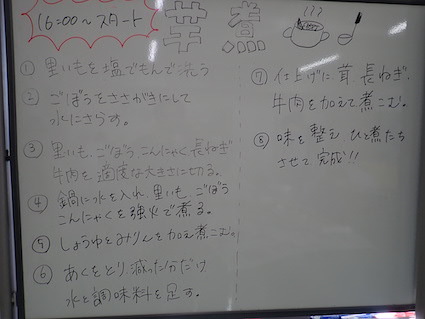 16:00～スタート
芋煮
① 里いもを塩でもんで洗う
② ごぼうをささがきにして
水にさらす。
③ 里いも、ごぼう、こんにゃく、長ねぎ
牛肉を適度な大きさに切る。
④ 鍋に水を入れ、里いも、ごぼう
こんにゃくを強火で煮る。
⑤ しょうゆとみりんを加え煮こむ。
⑥ あくをとり、減った分だけ
水と調味料を足す。
⑦ 仕上げに茸、長ねぎ、
牛肉を加えて煮こむ。
⑧ 味を整え ひと煮たち
させて完成!!